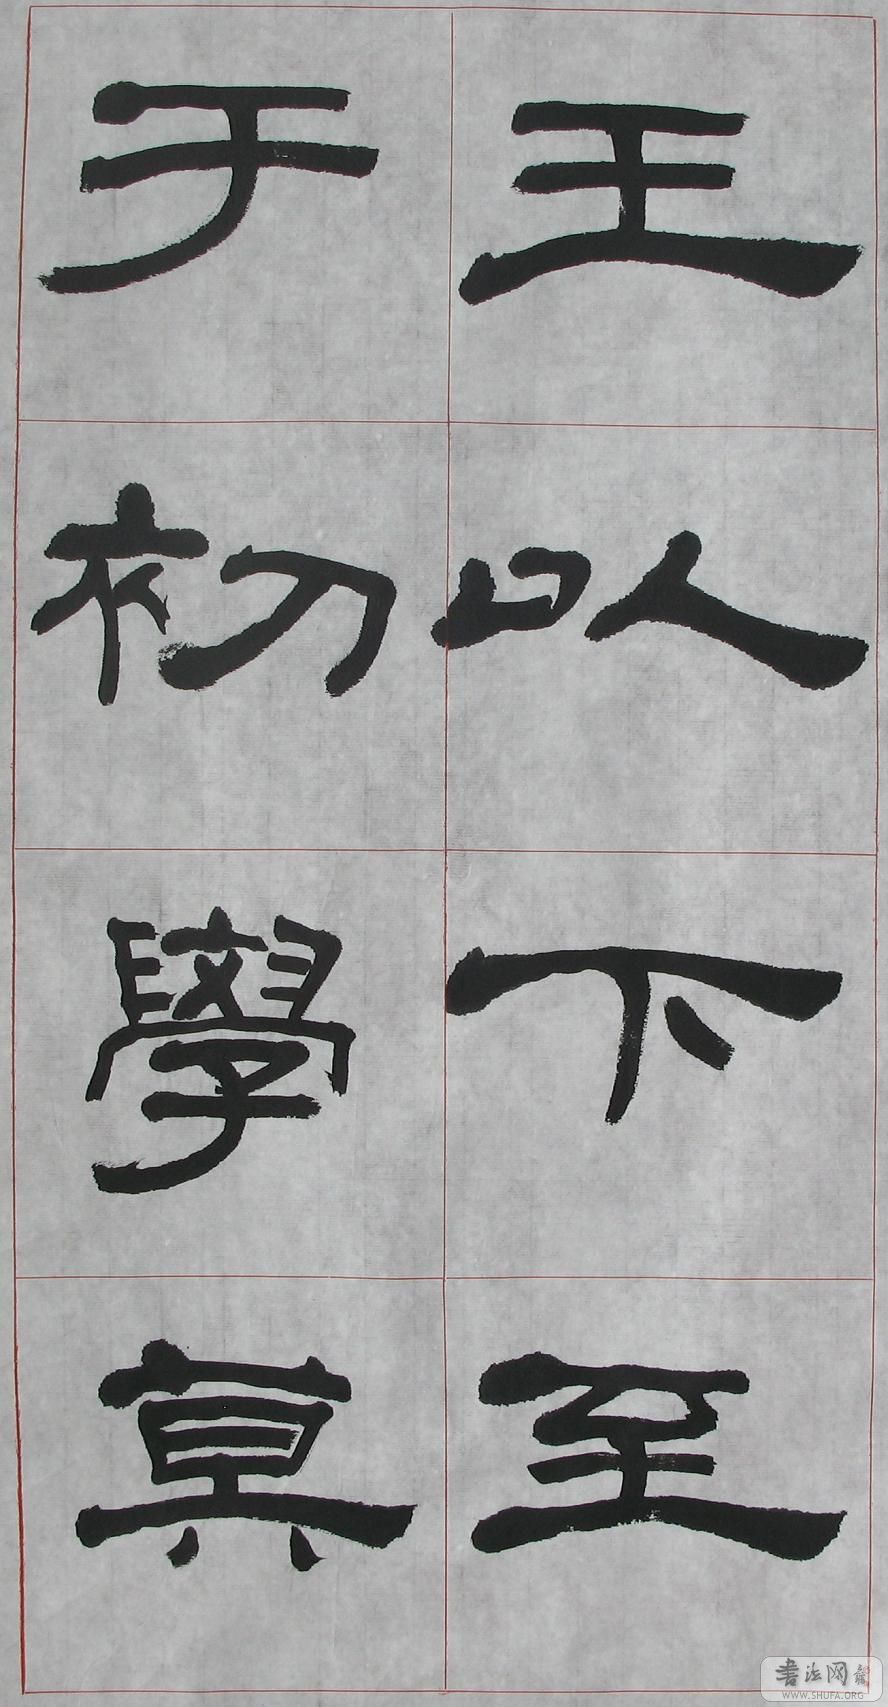 王以下至
于初學莫
書法网
WWW.SHUFA.ORG